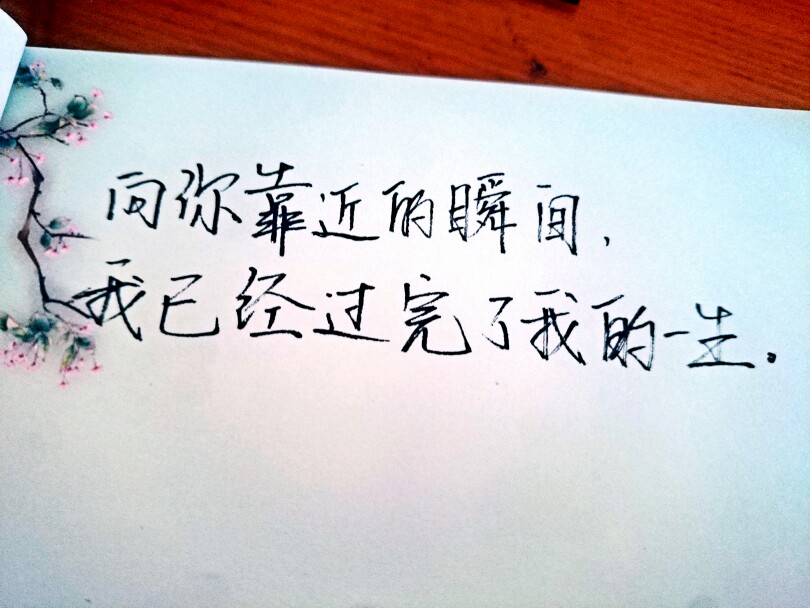 向你靠近的瞬间，
我已经过完了我的一生。